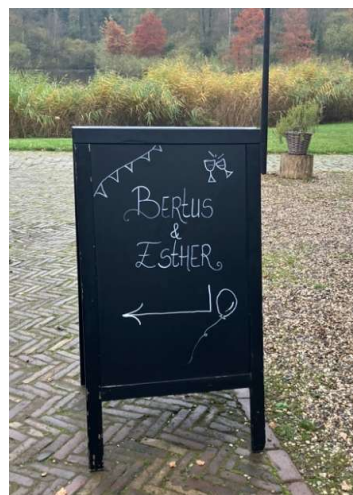 Bertus
&
Esther